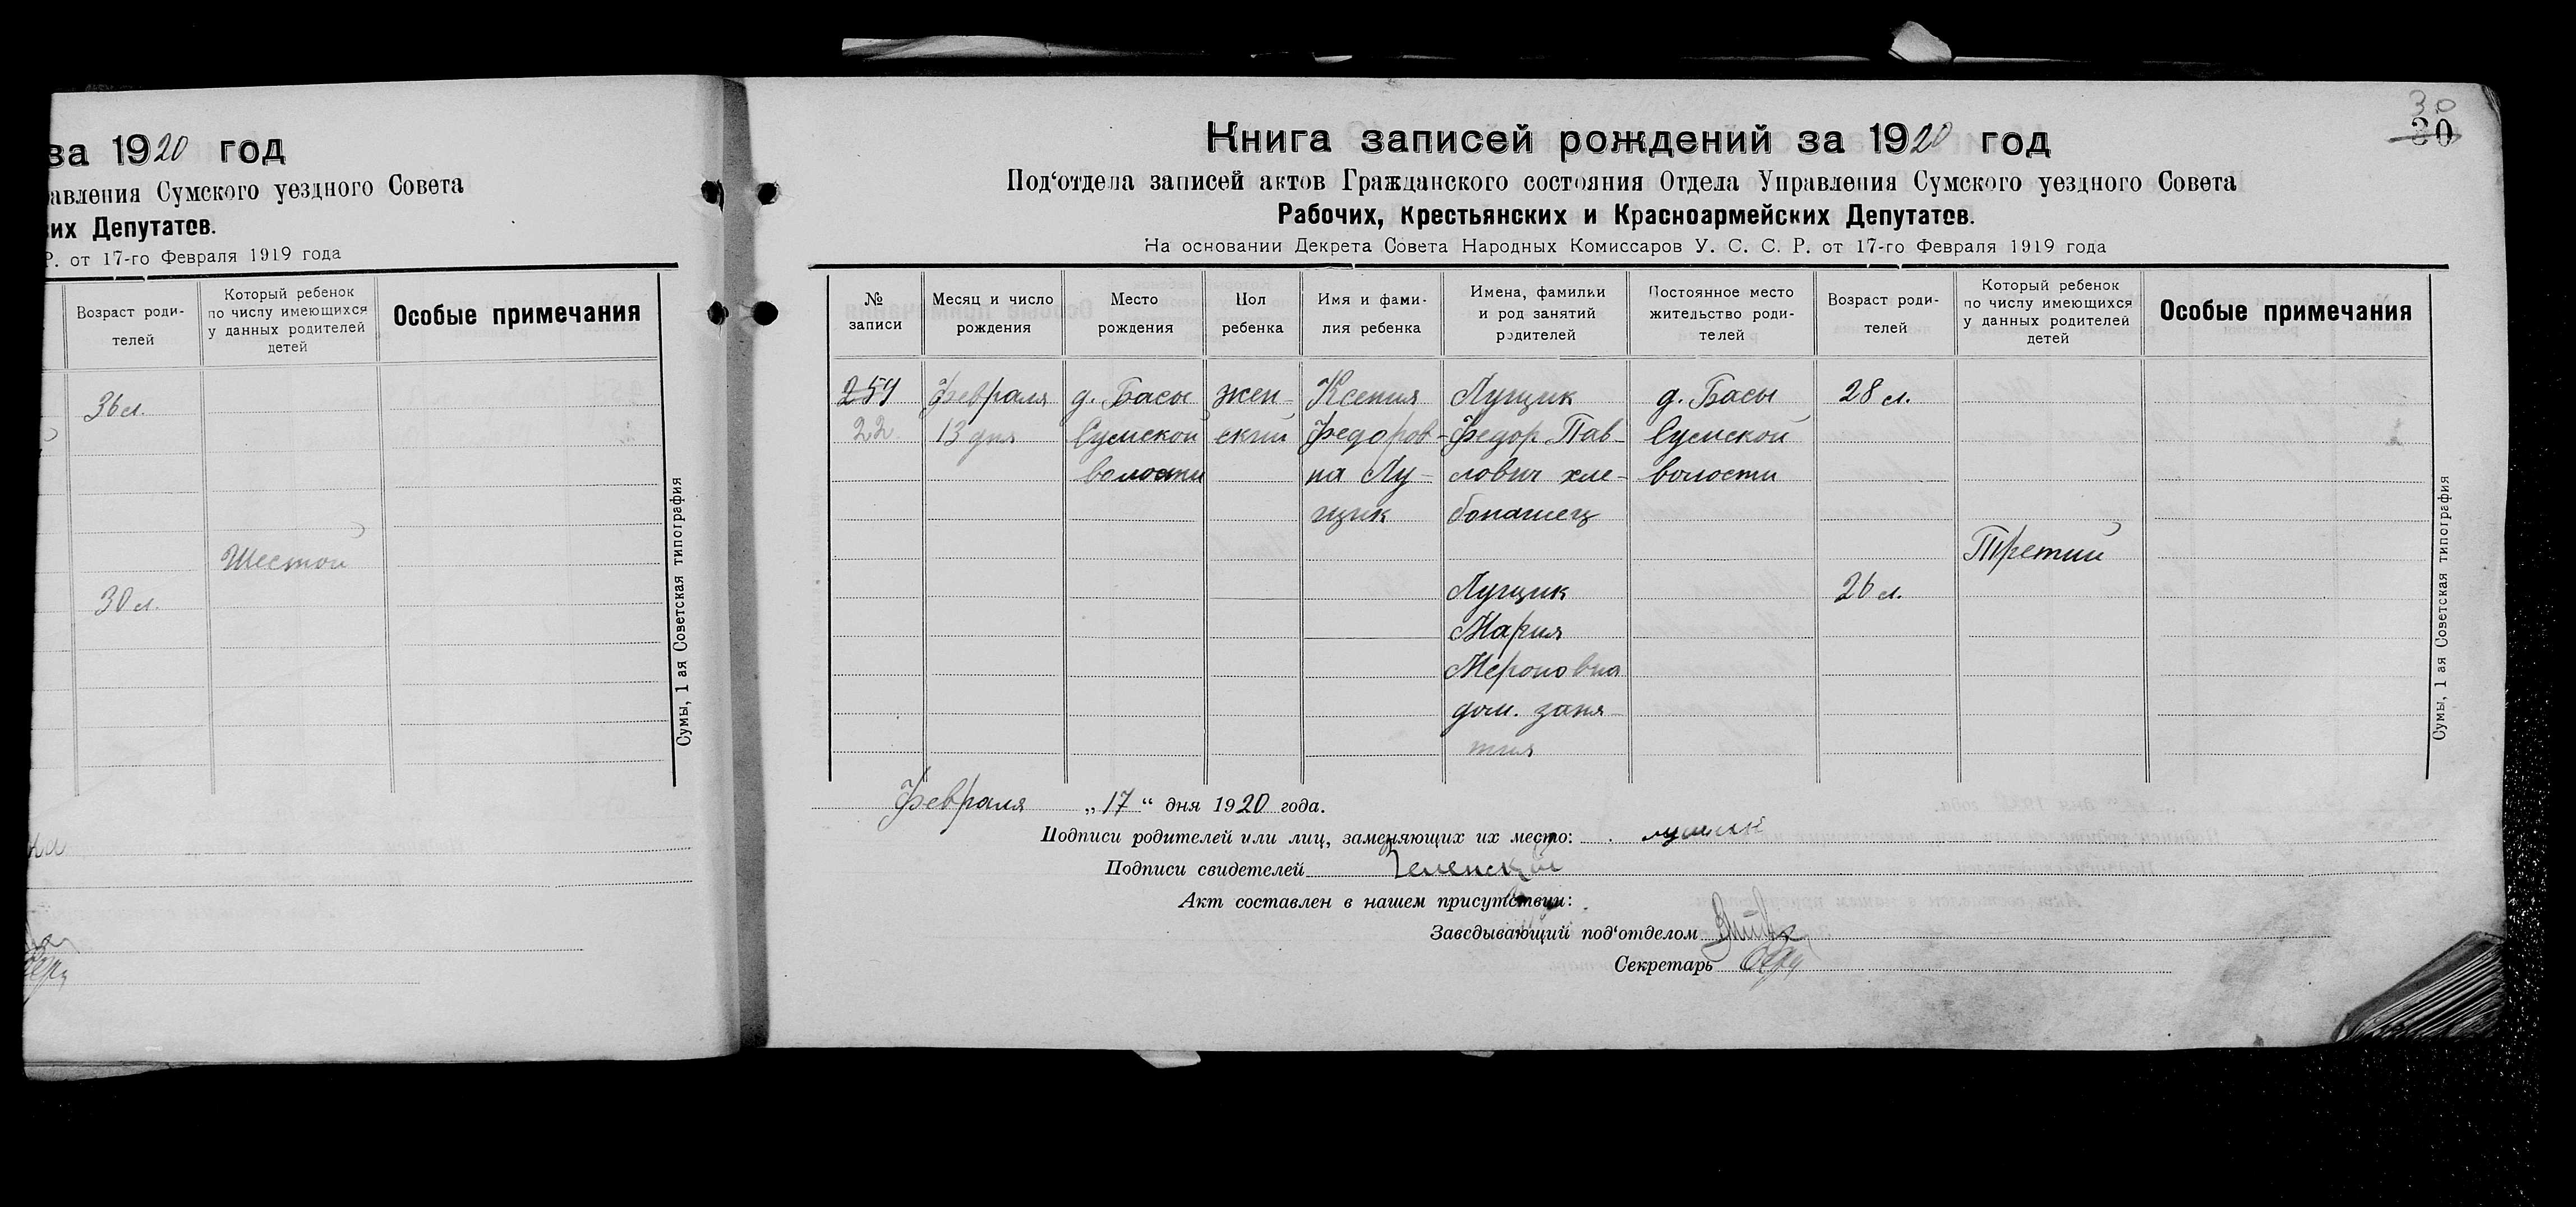 ва 1920 год
авления Сумского уездного Совета
их Депутатов.
Р. от 17-го Февраля 1919 года
Возраст роди-
телей
Который ребенок
по числу имеющихся
у данных родителей
детей
Особые примечания
36 л.
Шестой
30 л.
Сумы, 1 ая Советская типография
30
30
Книга записей рождений за 1920 год
Под'отдела записей актов Гражданского состояния Отдела Управления Сумского уездного Совета
Рабочих, Крестьянских и Красноармейских Депутатов.
На основании Декрета Совета Народных Комиссаров У. С. С. Р. от 17-го Февраля 1919 года
№
записи
Месяц и число
рождения
Место
рождения
Пол
ребенка
Имя и фами-
лия ребенка
Имена, фамилии
и род занятий
родителей
Постоянное место
жительство роди-
телей
Возраст роди-
телей
Который ребенок
по числу имеющихся
у данных родителей
детей
Особые примечания
259 Февраля д. Басы жен- Ксения Лущик д. Басы 28 л.
22 13 дня Сумской ский Федоров- Федор Пав- Сумской
волости на Лу- лович хле- волости
щик бопашец
Третий
Лущик 26 л.
Мария
Мероновна
дом. заня-
тия
Февраля „17“ дня 1920 года.
Подписи родителей или лиц, заменяющих их место:
Подписи свидетелей
Акт составлен в нашем присутствии:
Заведывающий под'отделом
Секретарь
Сумы, 1 ая Советская типография